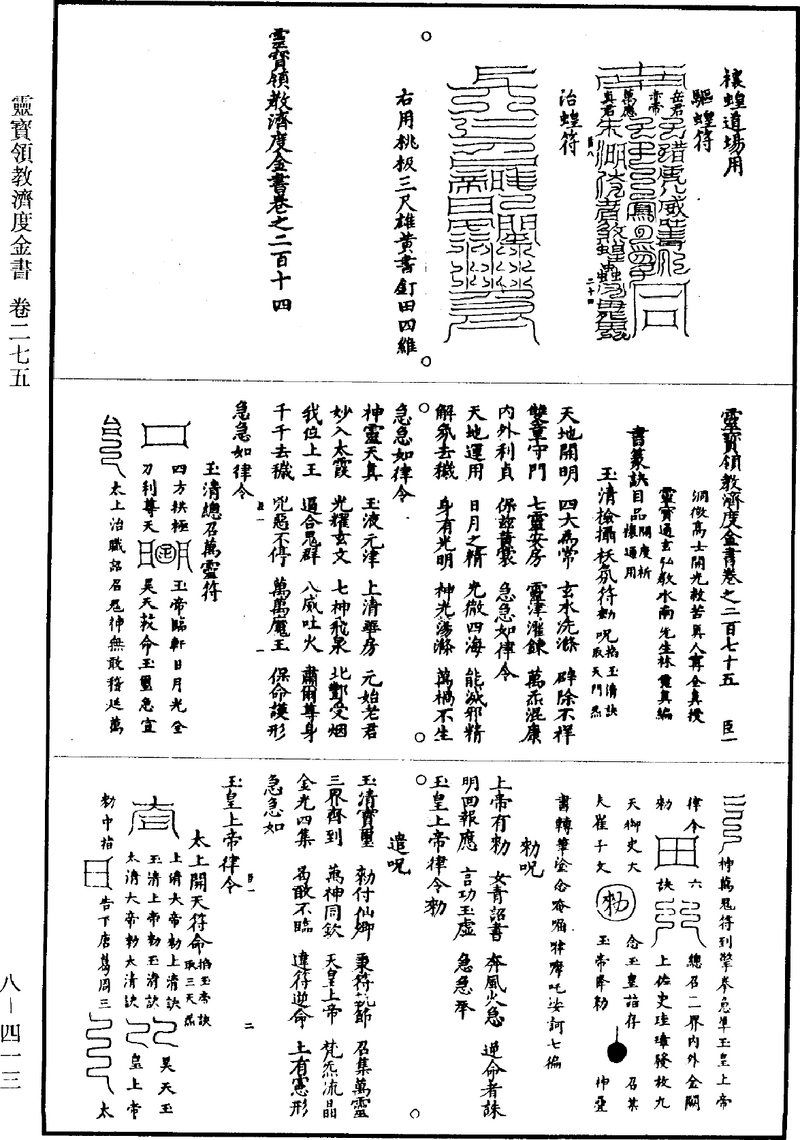 靈寶領教濟度金書 卷二七五
八－四一三
禳蝗道場用
驅蝗符
治蝗符
右用桃板三尺雄黃書釘田四維
靈寶領教濟度金書卷之二百十四
靈寶領教濟度金書卷之二百七十五 臣一
洞微高士開光救苦真人甯全真授
靈寶通玄弘教水南先生林靈真編
書篆訣目品開度祈禳通用
玉清檢攝袄氛符 勑呪 掐玉清訣取天門炁
天地開明 四大為常 玄水洗滌 辟除不祥
雙童守門 七靈安房 靈津灌鍊 萬炁混康
內外利貞 保諒黃裳 急急如律令
天地運用 日月之精 光徹四海 能滅邪精
解氛去穢 身有光明 神光蕩滌 萬禍不生
急急如律令
神靈天真 玉液元津 上清華房 元始老君
妙入太霞 光耀玄文 七神飛泉 北酆受烟
我位上王 逼合鬼群 八威吐火 肅爾尊身
千千去穢 兇惡不停 萬萬魔王 保命護形
急急如律令
玉清總召萬靈符
四方袄極 玉帝臨軒日月光全
刀利尊天 昊天敕命玉璽急宣
太上治職詔召鬼神無敢稽延萬
神萬鬼得到擎拳急準玉皇上帝
律令 六 總召二界內外金闕
勑 訣 上佐史
天御史大 念玉皇諱存 召某
夫崔子文 勑 玉帝降勑 神靈
書轉筆塗念唵嗡 摩吒娑訶七徧
勑呪
上帝有勑 女青詔書 奔風火急 逆命者誅
明回報應 言功玉虛 急急奉
玉皇上帝律令勑
遣呪
玉清寶璽 勑付仙卿 秉符執節 召集萬靈
三界齊到 萬神同欽 天皇上帝 梵炁流晶
金光四集 曷敢不臨 違符逆命 上有憲形
急急如
玉皇上帝律令
太上開天符命 掐玉帝訣取三天炁
上清大帝勑上清訣 昊天玉
玉清上帝勑玉清訣 皇上帝
太清大帝勑太清訣
勑中指 告下唐葛周三 太